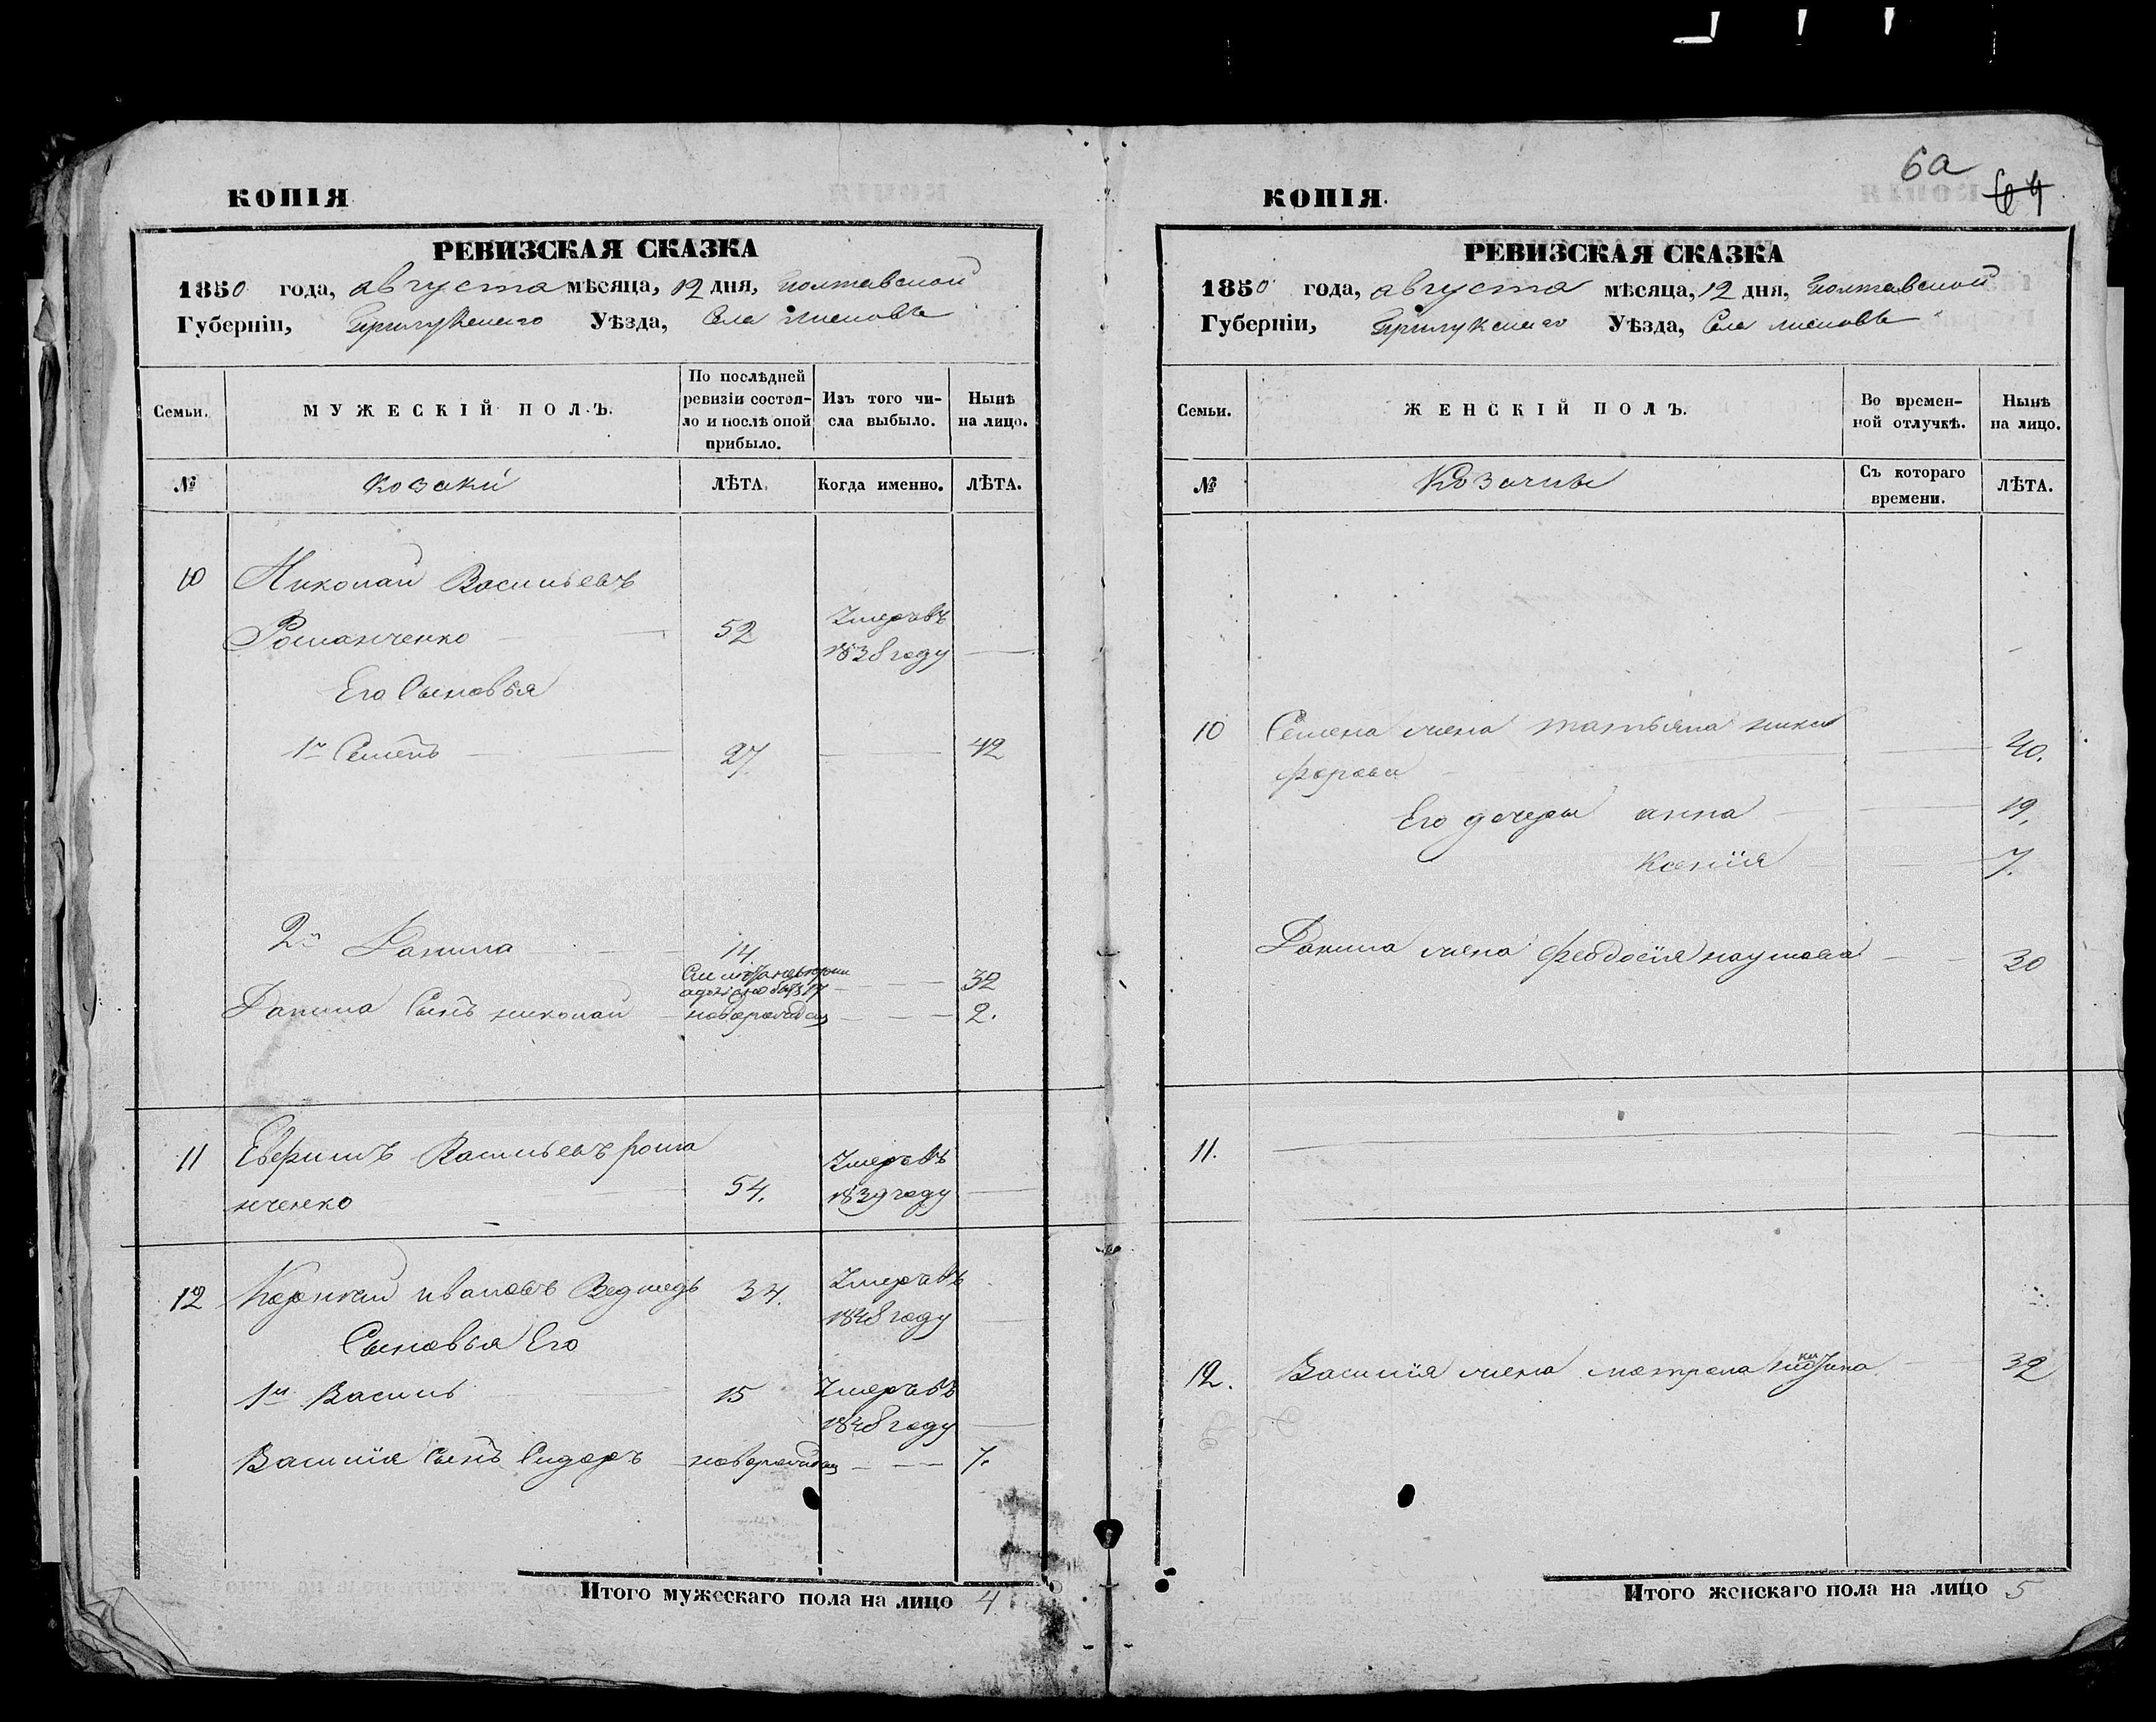 КОПІЯ
РЕВИЗСКАЯ СКАЗКА
1850 года, августа мѣсяца, 12 дня, Полтавской
Губерніи, Прилукского Уѣзда, Села
Семьи.
МУЖЕСКІЙ ПОЛЪ.
По послѣдней
ревизіи состоя-
ло и послѣ оной
прибыло.
Изъ того чи-
сла выбыло.
Нынѣ
на лицо.
№
Козаки
ЛѢТА.
Когда именно.
ЛѢТА.
10 Николай Васильевъ
Романченко 52 Умеръ въ
1838 году
Его Сыновья
1й Семенъ 27 42
2й Данила 14
32
Данила Сынъ николай новорожден 2.
11 Евфимъ Васильевъ рома
нченко 54. Умеръ въ
1839 году
12 ивановъ Ведмедь 34. Умеръ въ
1848 году
Сыновья Его
1й Василь 15 Умеръ въ
1848 году
Василія Сынъ Сидоръ новорожден 7.
Итого мужескаго пола на лицо 4
6а
64
КОПІЯ.
РЕВИЗСКАЯ СКАЗКА
1850 года, августа мѣсяца, 12 дня, Полтавской
Губерніи, Прилукского Уѣзда, Села
Семьи.
ЖЕНСКІЙ ПОЛЪ.
Во времен-
ной отлучкѣ.
Нынѣ
на лицо.
№
Козачки
Съ котораго
времени.
ЛѢТА.
10 Семена жена татьяна ники
форова 40.
Его дочеры анна 19,
Ксенія 7.
Данила жена феодосія наумова 30
11.
12. Василія жена матрона 32
Итого женскаго пола на лицо 5